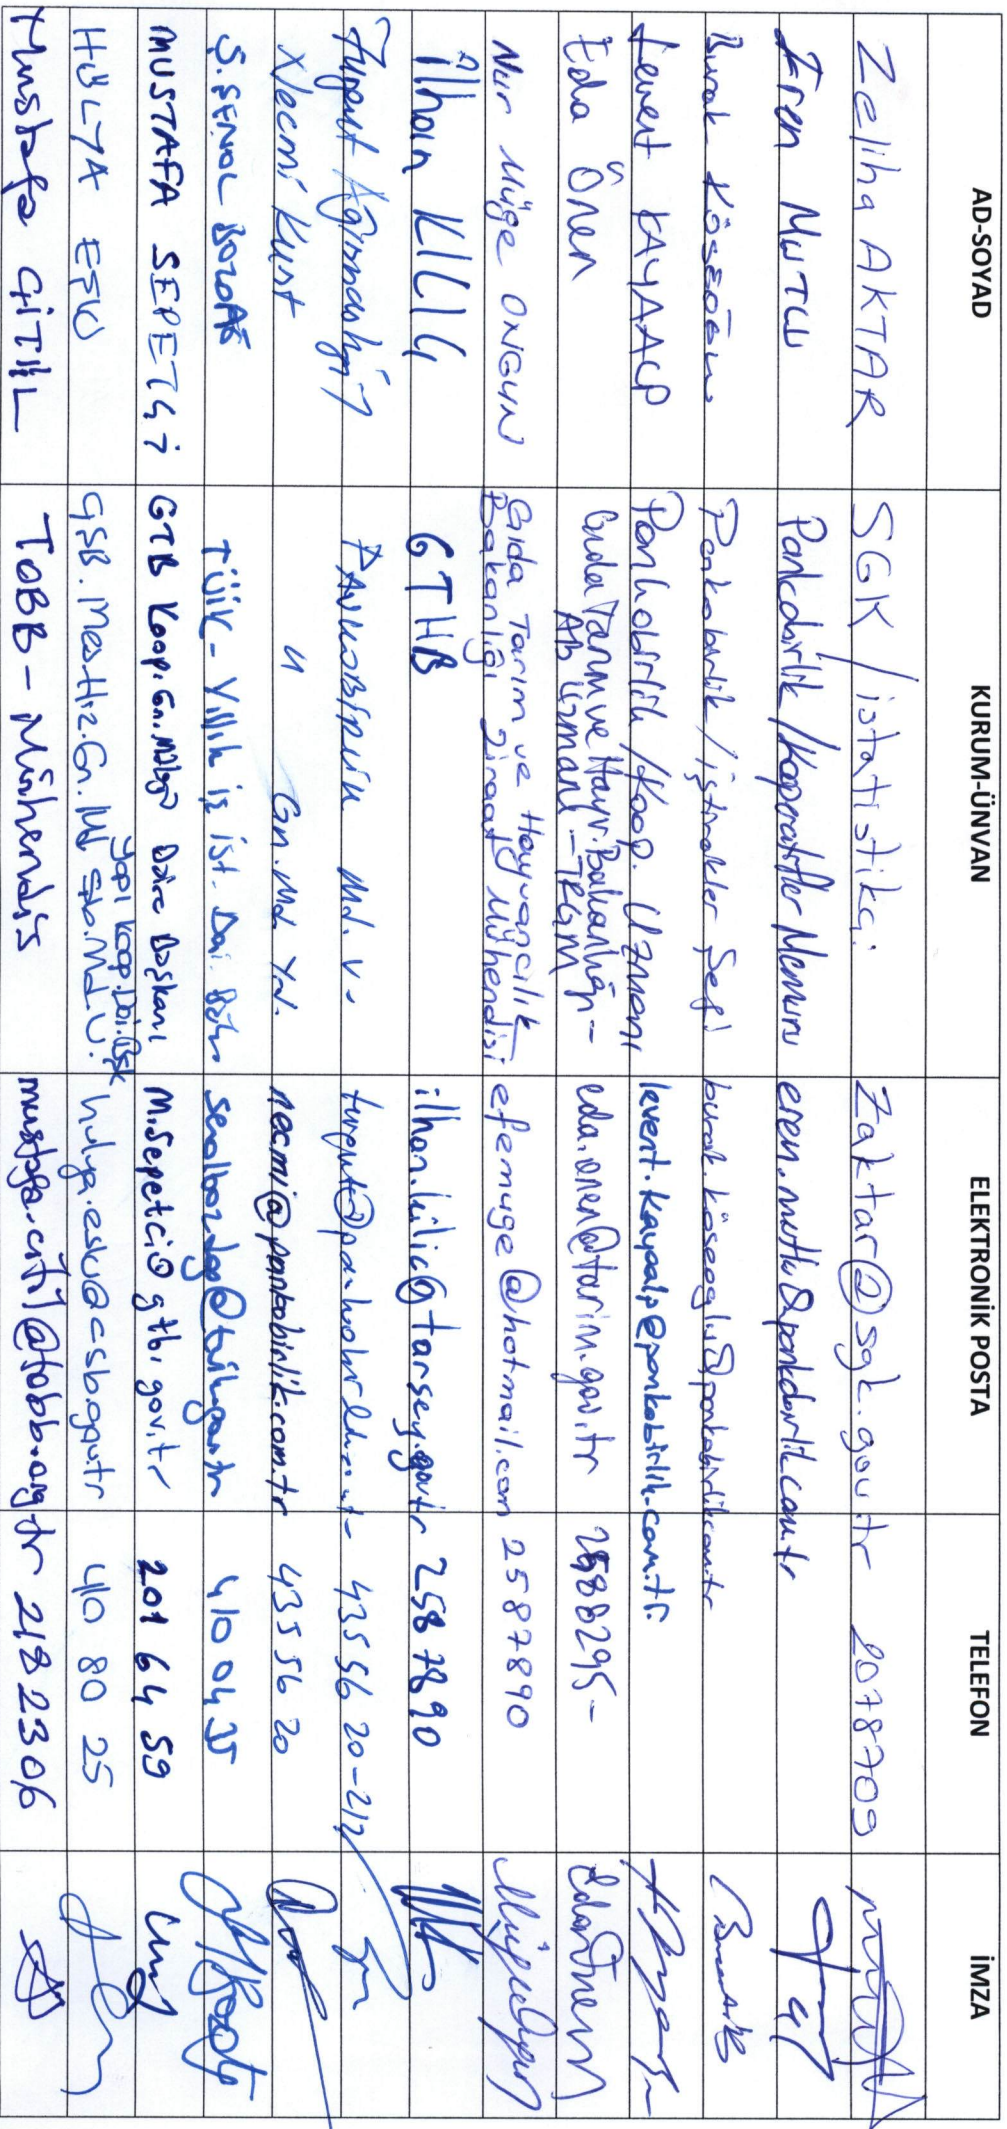 AD-SOYAD KURUM-ÜNVAN ELEKTRONİK POSTA TELEFON İMZA
Zeliha AKTAR SGK / istatistikçi zaktar@sgk.gov.tr 2078709
Eren MUTLU Pankobirlik / Kooperatifler Memuru eren.mutlu@pankobirlik.com.tr
Burak Köseoğlu Pankobirlik / iştirakler Şefi burak.köseoglu@pankobirlik.com.tr
Levent KAYAALP Pankobirlik / Koop. Uzmanı levent.kayaalp@pankobirlik.com.tr.
Eda ÖNEN Gıda Tarım ve Hayv. Bakanlığı- eda.onen@tarim.gov.tr 2588295-
AB Uzmanı - TRGM
Nur Müge ONGUN Gıda Tarım ve Hayvancılık efemuge@hotmail.com 2587890
Bakanlığı Ziraat Mühendisi
ilhan KILIÇ GTHB ilhan.kilic@tarsey.gov.tr 2587890
Turgut PANKOBİRLİK Md. V. 435 56 20-212
Necmi Kurst " Gn. Md. Yr. necmi@pankobirlik.com.tr 435 56 20
Ş. ŞENOL BOZDAĞ TÜİK - Yıllık iş ist. Dai. senolbozdag@tuik.gov.tr 410 04 35
MUSTAFA SEPETÇİ GTB Koop. Gn. Mdlğ Daire Başkanı M.Sepetci@gtb.gov.tr 201 64 59
Yapı Koop. Dai. Bşk
HÜLYA ESKİ ÇŞB. Mes. Hiz. G. Md. hulya.eski@csb.gov.tr 410 80 25
Mustafa ÇİTİL TOBB - Mühendis mustafa.citil@tobb.org.tr 218 2306